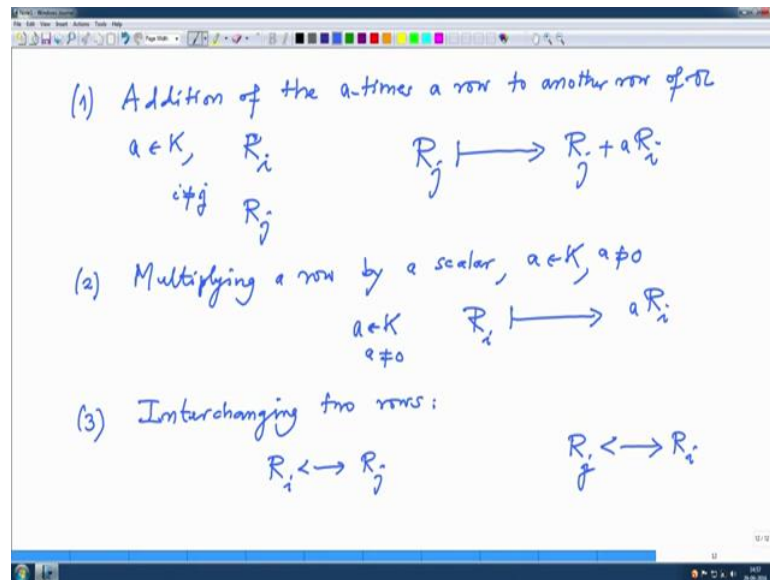 Note1 - Windows Journal
File Edit View Insert Actions Tools Help
Page Width
B I
(1) Addition of the a-times a row to another row of 𝔐
a ∈ K, R_i R_j ⟼ R_j + a R_i
i ≠ j R_j
(2) Multiplying a row by a scalar, a ∈ K, a ≠ 0
a ∈ K R_i ⟼ a R_i
a ≠ 0
(3) Interchanging two rows:
R_i ⟷ R_j R_j ⟷ R_i
12/12
12